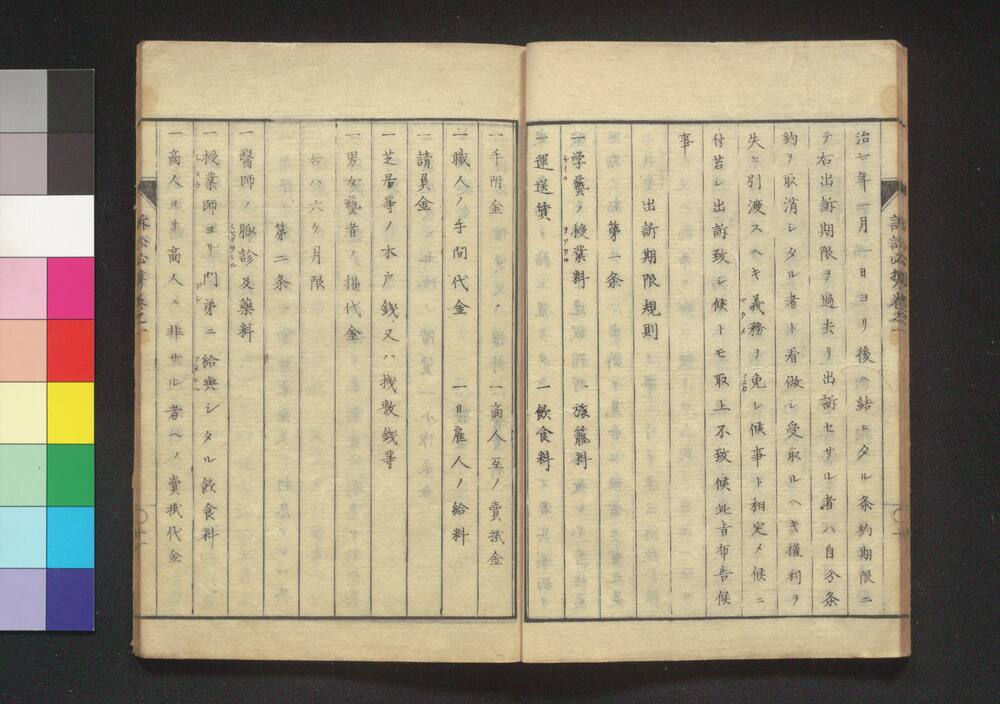 治七年一月一日ヨリ後ニ結ヒタル条約期限ニ
テ右出訴期限ヲ過去リ出訴セサル者ハ自分条
約ヲ取消シタル者ト看做シ受取ルヘキ權利ヲ
失ヒ引渡スヘキ義務ヲ免レ候事ト相定メ候ニ
付若シ出訴致シ候トモ取上不致候此旨布告候
事
出訴期限規則
第一条
一学藝ノ授業料 一旅籠料
一運送賃 一飲食料
一手附金 一商人互ノ賣掛金
一職人ノ手間代金 一日雇人ノ給料
一請負金
一芝居等ノ木戸錢又ハ棧敷錢等
一男女藝者ノ揚代金
右ハ六ケ月限
第二条
一醫師ノ脈診及藥料
一授業師ヨリ門弟ニ給與シタル飲食料
一商人ヨリ商人ニ非サル者ヘノ賣掛代金